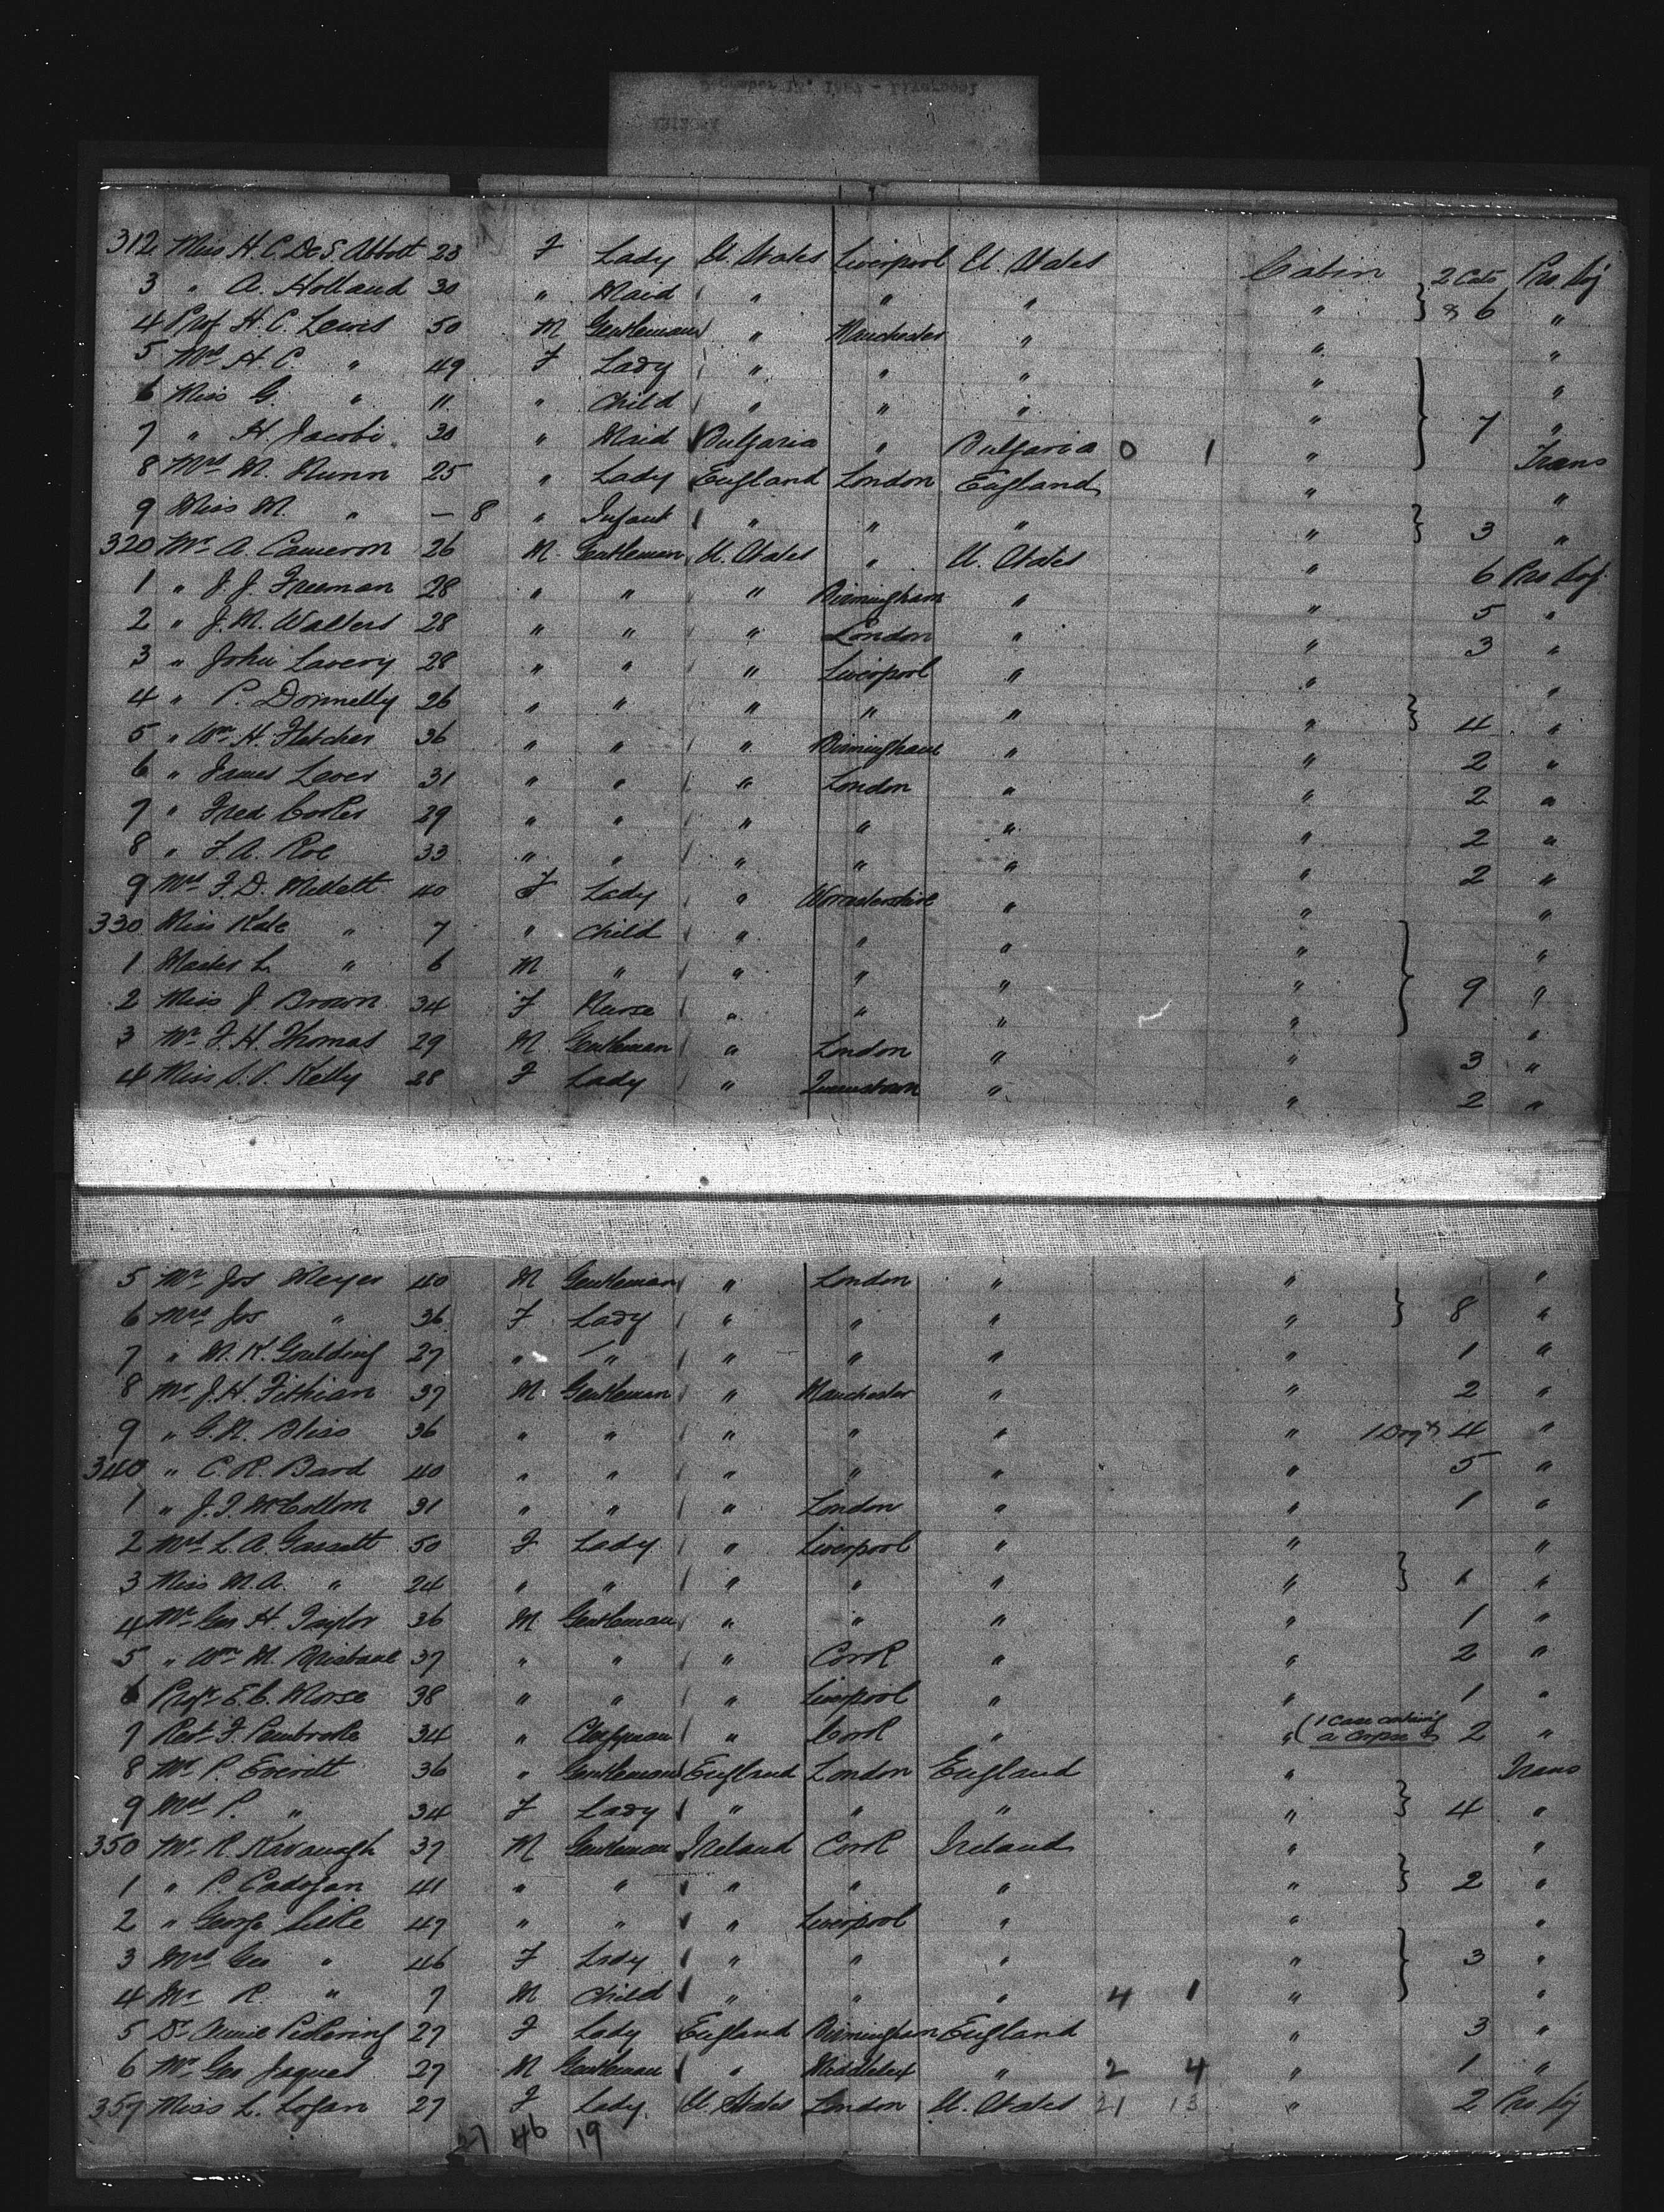 312 Miss H. C. De S. Abbott 23 F Lady U. States Liverpool U. States Cabin 2 Cats Pro Soj
3 " A. Holland 30 " Maid " " " " & 6 "
4 Prof H. C. Lewis 50 M Gentleman " Manchester " " "
5 Mrs H. C. " 49 F Lady " " " " "
6 Miss G. " 11 " Child " " " " 7 "
7 " H. Jacobi 30 " Maid Bulgaria " Bulgaria 0 1 " Trans
8 Mrs M. Nunn 25 " Lady England London England " "
9 Miss M. " — 8 " Infant " " " " 3 "
320 Mr A. Cameron 26 M Gentleman U. States " U. States " 6 Pro Soj
1 " J. J. Freeman 28 " " " Birmingham " " 5 "
2 " J. M. Walters 28 " " " London " " 3 "
3 " John Lavery 28 " " " Liverpool " " "
4 " P. Donnelly 26 " " " " " " 4 "
5 " Wm H. Fletcher 36 " " " Birmingham " " 2 "
6 " James Lever 31 " " " London " " 2 "
7 " Fred 29 " " " " " " 2 "
8 " F. A. Roe 33 " " " " " " 2 "
9 Mrs F. D. Millett 40 F Lady " Worcestershire " " "
330 Miss Kate " 7 " Child " " " " "
1 Master L. " 6 M " " " " " 9 "
2 Miss J. Brown 34 F Nurse " " " " "
3 Mr F. H. Thomas 29 M Gentleman " London " " 3 "
4 Miss S. V. Kelly 28 F Lady " Queenstown " " 2 "
5 Mr Jos Meyer 40 M Gentleman " London " " "
6 Mrs Jos " 36 F Lady " " " " 8 "
7 " M. K. Goulding 27 " " " " " " 1 "
8 Mr J. H. Fithian 37 M Gentleman " Manchester " " 2 "
9 " G. N. Bliss 36 " " " " " " 1 Dog & 4 "
340 " C. R. Bard 40 " " " " " " 5 "
1 " J. T. McCollom 31 " " " London " " 1 "
2 Mrs L. A. Gassett 50 F Lady " Liverpool " " "
3 Miss M. A. " 24 " " " " " " 1 "
4 Mr Geo H. Taylor 36 M Gentleman " " " " 1 "
5 " Wm M. Brisbane 37 " " " Cork " " 2 "
6 Profr E. C. Morse 38 " " " Liverpool " " 1 "
7 Revd F. Pembroke 34 " Clergyman " Cork " " (1 Case containing a Corpse & 2 "
8 Mr P. Everitt 36 " Gentleman England London England " Trans
9 Mrs P. " 34 F Lady " " " " 4 "
350 Mr R. Kavanagh 37 M Gentleman Ireland Cork Ireland " "
1 " P. Cadogan 41 " " " " " " 2 "
2 " George 47 " " " Liverpool " " "
3 Mrs Geo " 46 F Lady " " " " 3 "
4 Mr R. " 7 M Child " " " 4 1 " "
5 Dr Annie Pickering 27 F Lady England Birmingham England " 3 "
6 Mr Geo Jaques 27 M Gentleman " Middlesex " 2 4 " 1 "
357 Miss L. Logan 27 F Lady U. States London U. States 21 13 " 2 Pro Soj
27 46 19